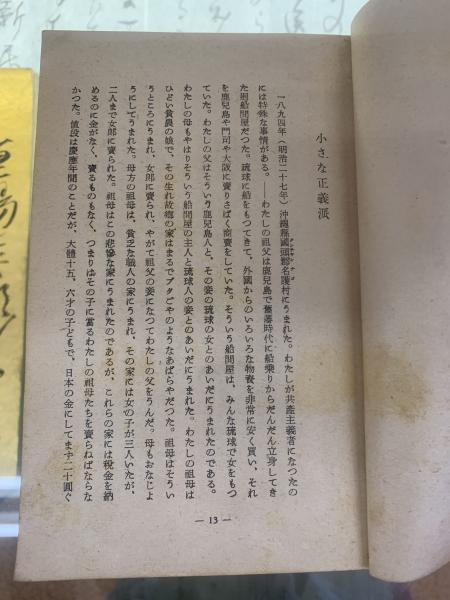 小さな正義派
一八九四年(明治二十七年)沖縄縣國頭郡名護村にうまれた。わたしが共産主義者になつたの
には特殊な事情がある。――わたしの祖父は鹿兒島で舊藩時代に船乗りからだんだん立身してき
た廻船問屋だつた。琉球に船をもつてきて、外國からのいろいろな物資を非常に安く買い、それ
を鹿兒島や門司や大阪に賣りさばく商賣をしていた。そういう船問屋は、みんな琉球で女をもつ
ていた。わたしの父はそういう鹿兒島人と、その妾の琉球の女とのあいだにうまれたのである。
わたしの母もやはりそういう船問屋の主人と琉球人の妾とのあいだにうまれた。わたしの祖母は
ひどい貧農の娘で、その生れ故鄕の家はまるでブタごやのようなあばらやだつた。祖母はそうい
うところにうまれ、女郎に賣られ、やがて祖父の妾になつてわたしの父をうんだ。母もおなじよ
うにしてうまれた。母方の祖母は、貧乏な職人の家にうまれ、その家には女の子が三人いたが、
二人まで女郎に賣られた。祖母はこの悲慘な家にうまれたのであるが、これらの家には税金を納
めるのに金がなく、賣るものもなく、つまりはその子に當るわたしの祖母たちを賣らねばならな
かつた。値段は慶應年間のことだが、大體十五、六才の子どもで、日本の金にしてまず二十圓ぐ
— 13 —